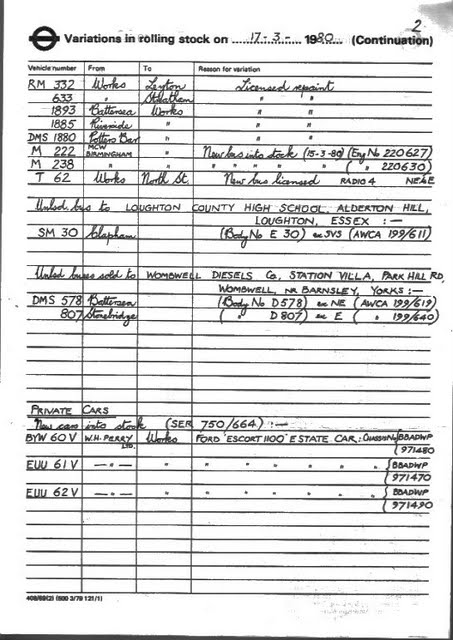 2
Variations in rolling stock on 17-3- 1980 (Continuation)
Vehicle number From To Reason for variation
RM 332 Works Leyton Licensed repaint
633 " Streatham " "
1893 Battersea Works " "
1885 Riverside " " "
DMS 1880 Potters Bar " " "
M 222 MCW BIRMINGHAM " New bus into stock (15-3-80) (Eng No 220627)
M 238 " " " " " " " ( " 220630)
T 62 Works North St. New bus licensed RADIO 4 NE4E
Unlsd. bus to LOUGHTON COUNTY HIGH SCHOOL, ALDERTON HILL,
LOUGHTON, ESSEX :—
SM 30 Clapham (Body No E 30) ex SVS (AWCA 199/611)
Unlsd buses sold to WOMBWELL DIESELS Co, STATION VILLA, PARK HILL RD,
WOMBWELL, NR BARNSLEY, YORKS :—
DMS 578 Battersea (Body No D578) ex NE (AWCA 199/619)
807 Stonebridge ( " D807) ex E ( " 199/640)
PRIVATE CARS
New cars into stock (SER 750/664) :—
BYW 60V W.H. PERRY LTD. Works FORD 'ESCORT 1100' ESTATE CAR: Chassis No BBADWP
971480
EUU 61V —"— " " " " " " BBADWP
971470
EUU 62V —"— " " " " " " BBADWP
971490
408/69(2) (500 3/79 121/1)